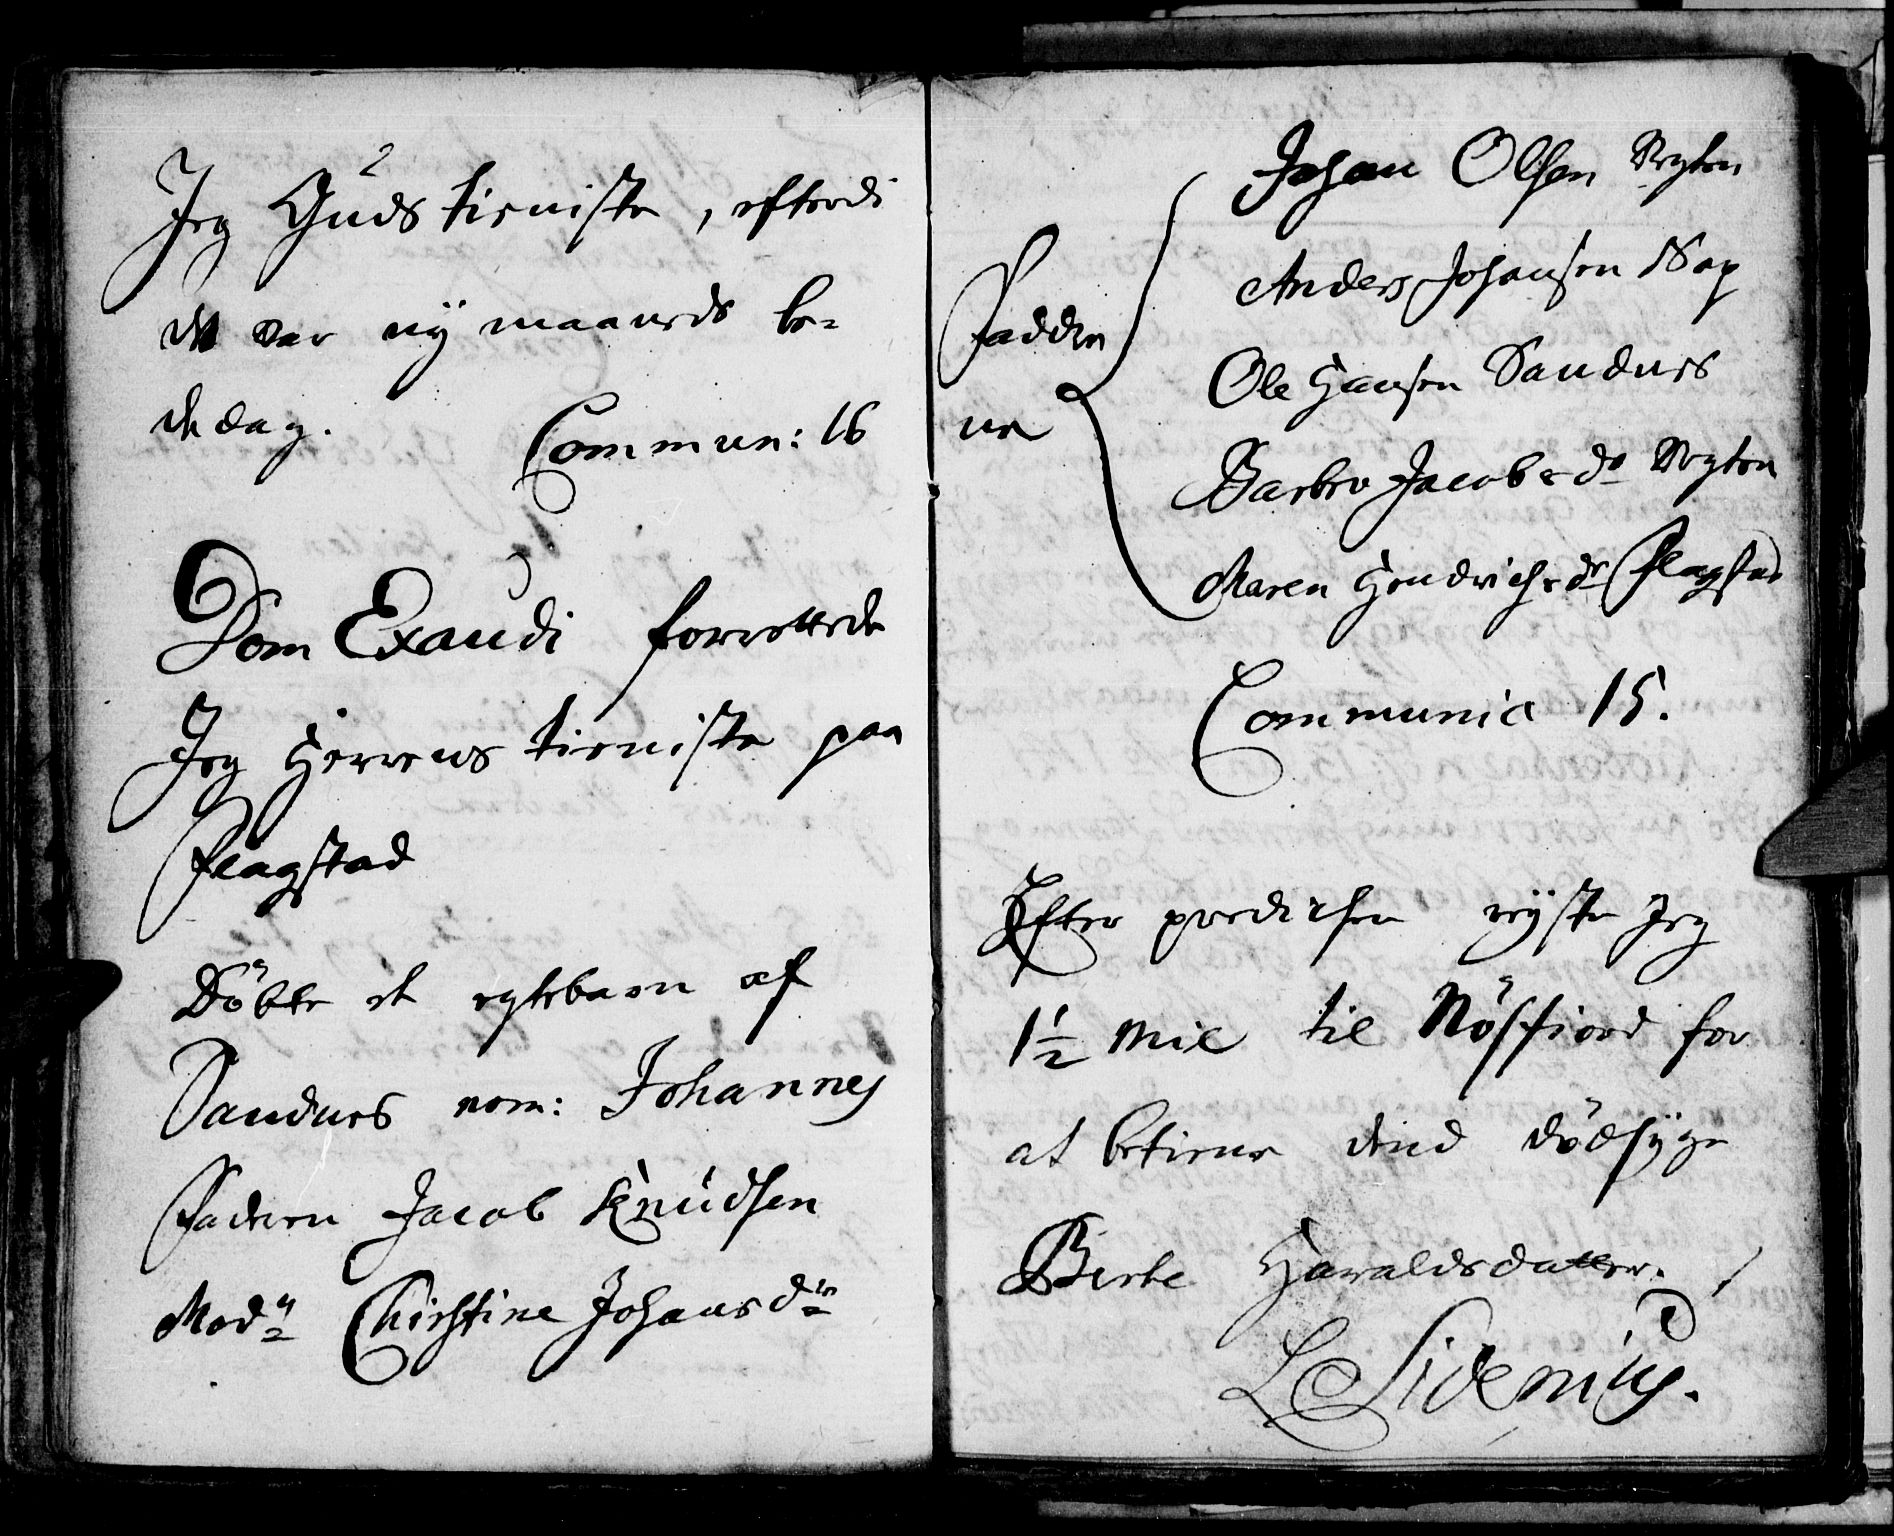 Jeg Guds tieniste, efterdi
det var ny maaneds be-
dedag. Commun: 16
Dom Exaudi forrettede
Jeg Herrens tieniste paa
Flagstad
Döbte et egtebarn af
Sandnes nom: Johannes
Faderen Jacob Knudsen
Mod: Christine Johansdr
Faddere
ne
Johan Olsen
Anders Johansen Nap
Ole Hansen Sandnes
Barbro Jacobsdr
Maren Hendrichsdr Flagstad
Communic 15.
Efter predichen rejste Jeg
1½ Mil til Nösfiord for
at betiene dend dödsÿge
Birte Haraldsdatter.
L Sidenius.